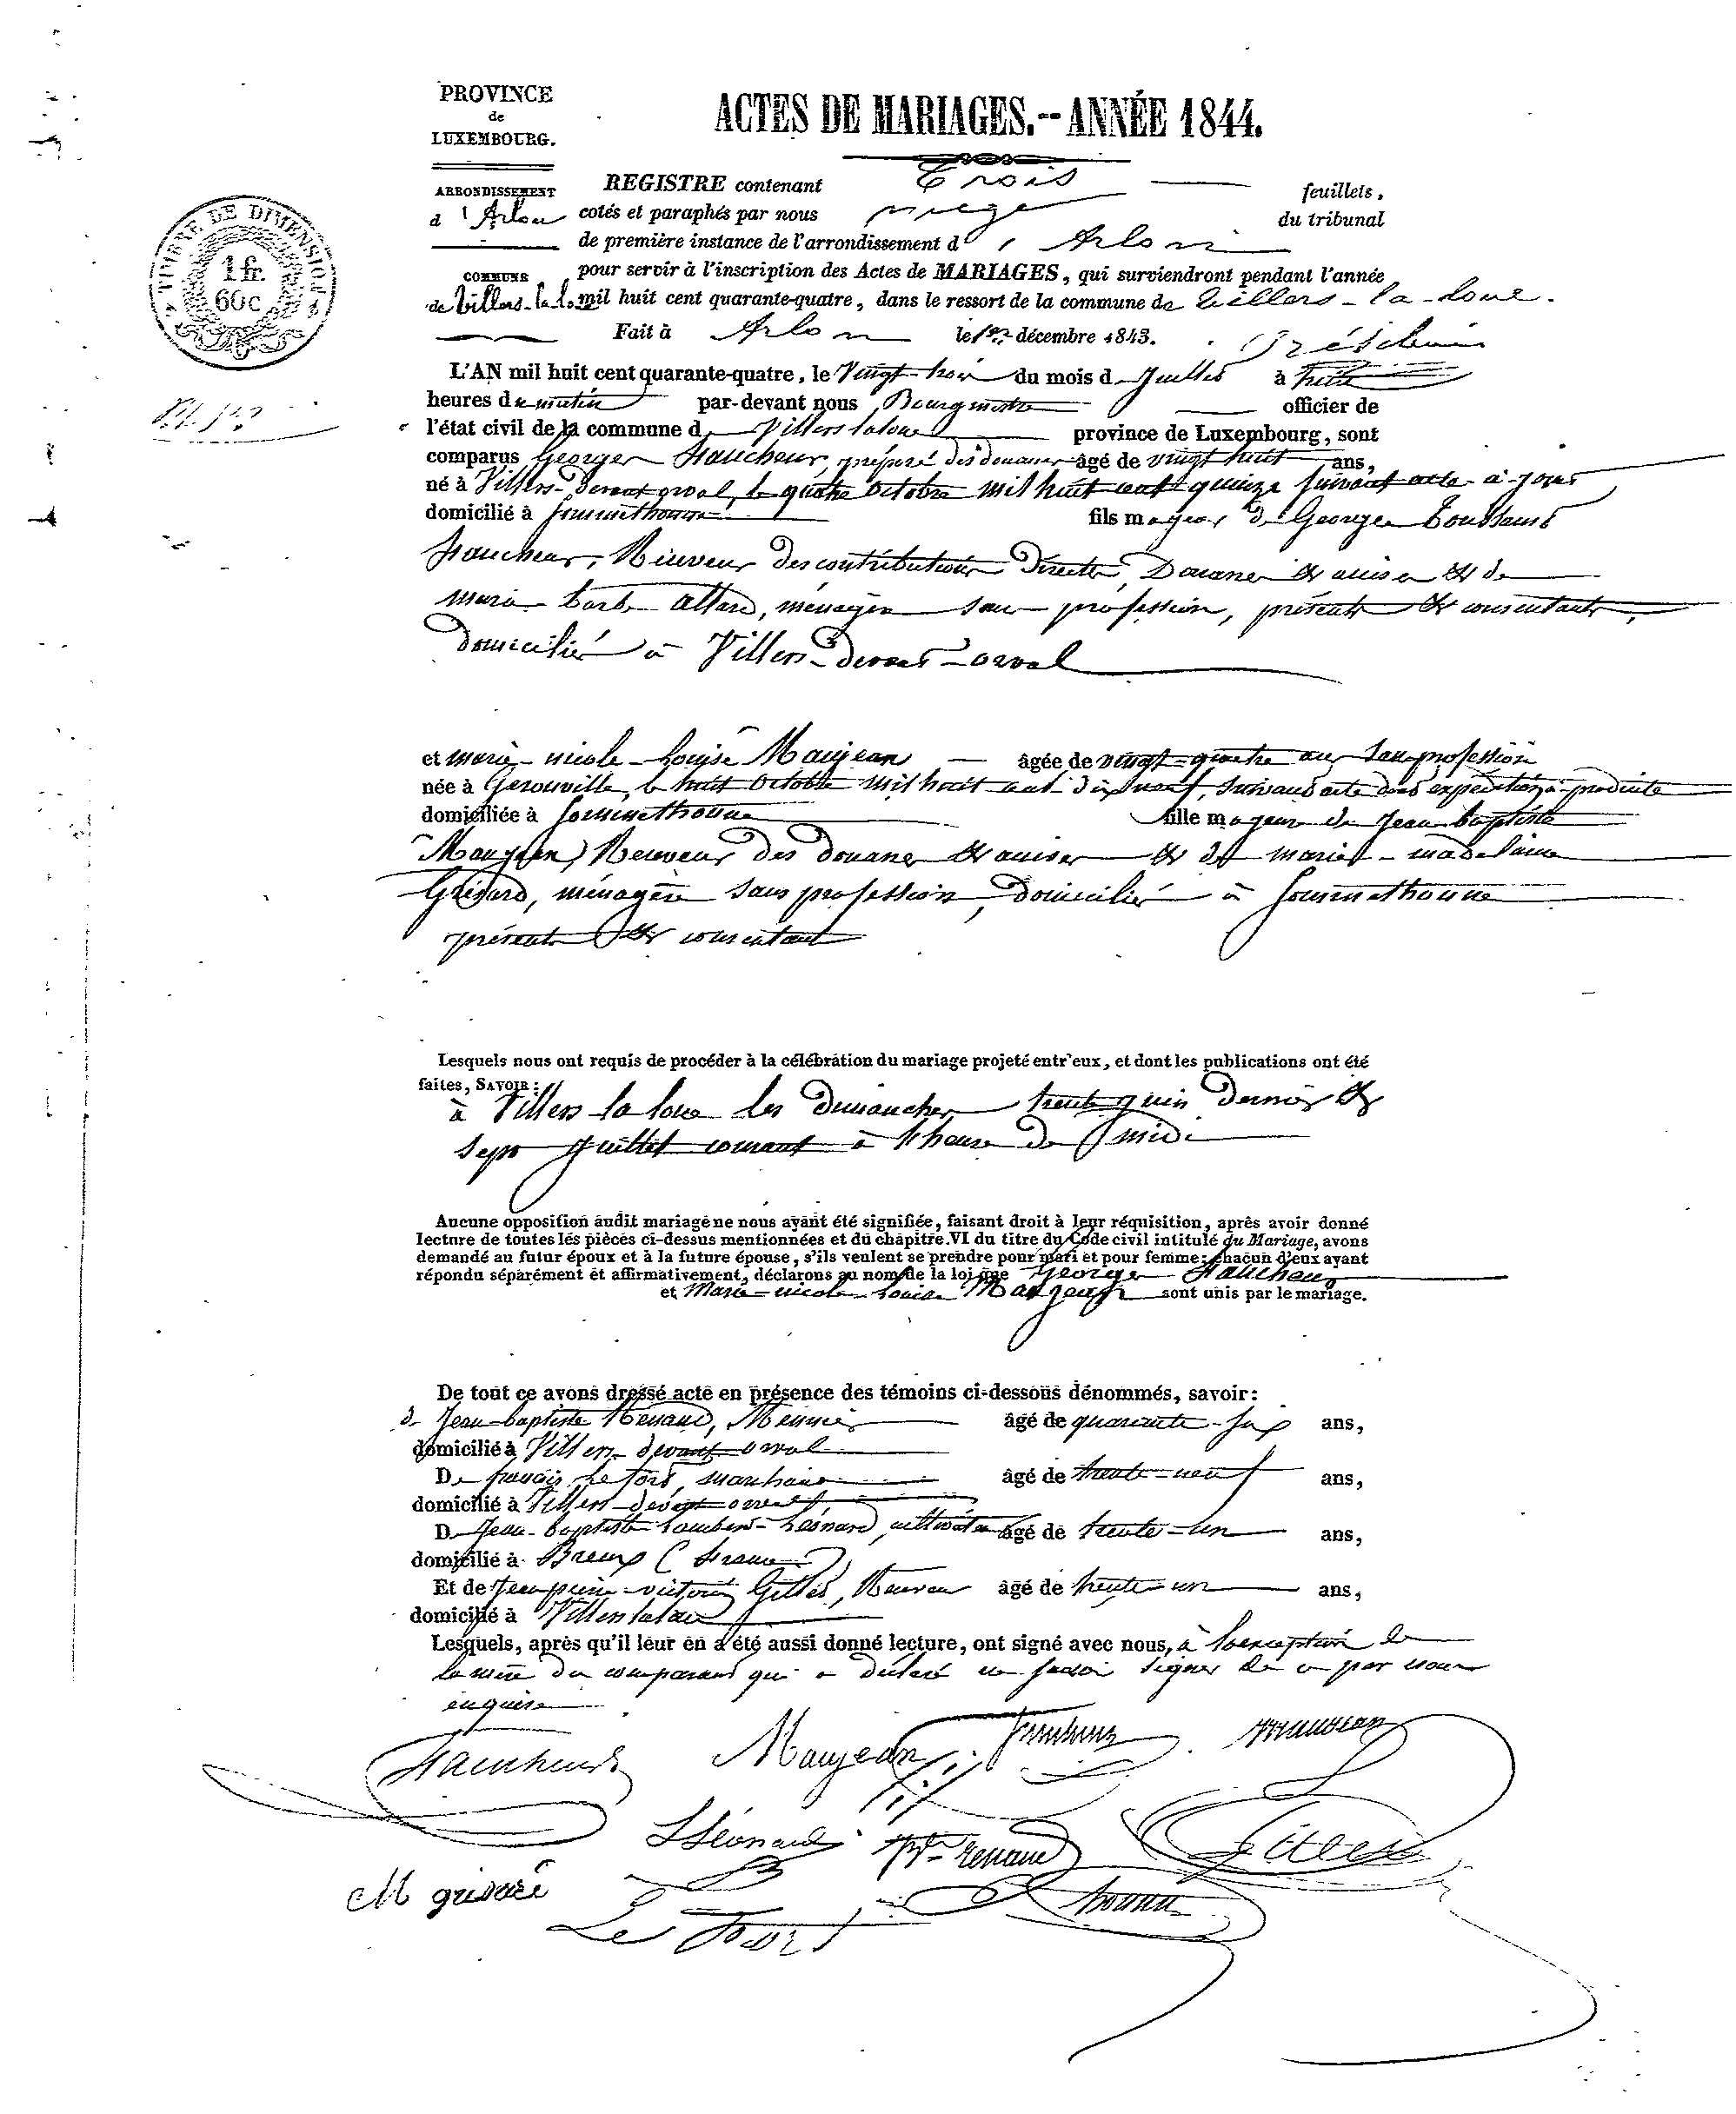 PROVINCE
de
LUXEMBOURG.
ACTES DE MARIAGES.-- ANNÉE 1844.
ARRONDISSEMENT
d'Arlon
COMMUNE
de Villers-la-Loue
TIMBRE DE DIMENSION
1 fr.
60 c
REGISTRE contenant Trois feuillets,
cotés et paraphés par nous juge du tribunal
de première instance de l'arrondissement d'Arlon
pour servir à l'inscription des Actes de MARIAGES, qui surviendront pendant l'année
mil huit cent quarante-quatre, dans le ressort de la commune de Villers-la-loue.
Fait à Arlon le 1er décembre 1843.
L'AN mil huit cent quarante-quatre, le Vingt trois du mois d Juillet à huit
heures du matin par-devant nous Bourgmestre officier de
l'état civil de la commune d Villers laloue province de Luxembourg, sont
comparus Georges Haucheur, préposé des douanes âgé de vingt huit ans,
né à Villers-devant orval, le quatre octobre mil huit cent quinze suivant acte à jour
domicilié à Sommethonne fils majeur de Georges Toussaint
Haucheur, Receveur des contributions directes, Douanes & accises & de
marie barbe allard, ménagère sans profession, présents & consentants,
domiciliés à Villers-devant-orval
et marie-nicole-Louise Maujean âgée de vingt-quatre ans sans profession
née à Gerouville, le huit octobre mil huit cent dix neuf, suivant acte dont expédition produite
domiciliée à Sommethonne fille majeure de Jean baptiste
Maujean, Receveur des douanes & accises & de marie-madelaine
Grisard, ménagère sans profession, domiciliés à Sommethonne
présents & consentant
Lesquels nous ont requis de procéder à la célébration du mariage projeté entr'eux, et dont les publications ont été
faites, SAVOIR:
à Villers la loue les dimanches trente juin dernier &
sept juillet courant à l'heure de midi
Aucune opposition audit mariage ne nous ayant été signifiée, faisant droit à leur réquisition, après avoir donné
lecture de toutes les pièces ci-dessus mentionnées et du chapitre VI du titre du Code civil intitulé du Mariage, avons
demandé au futur époux et à la future épouse, s'ils veulent se prendre pour mari et pour femme; chacun d'eux ayant
répondu séparément et affirmativement, déclarons au nom de la loi que Georges Haucheur
et Marie-nicole-Louise Maujean sont unis par le mariage.
De tout ce avons dressé acte en présence des témoins ci-dessous dénommés, savoir:
d Jean-baptiste Renaud, Meunier âgé de quarante-six ans,
domicilié à Villers-devant orval
De françois Le fort, marchand âgé de trente-neuf ans,
domicilié à Villers-devant orval
D Jean-baptiste Lambert-Léonard, cultivateur âgé de trente-un ans,
domicilié à Breux (France)
Et de Jean pierre-victoire Gilles, Receveur âgé de trente-un ans,
domicilié à Villers laloue
Lesquels, après qu'il leur en a été aussi donné lecture, ont signé avec nous, à l'exception de
la mère du comparant qui a déclaré ne savoir signer de ce par nous
enquise
Haucheur Maujean Maujean
Léonard Renaud Gilles
M grisard
Le Fort